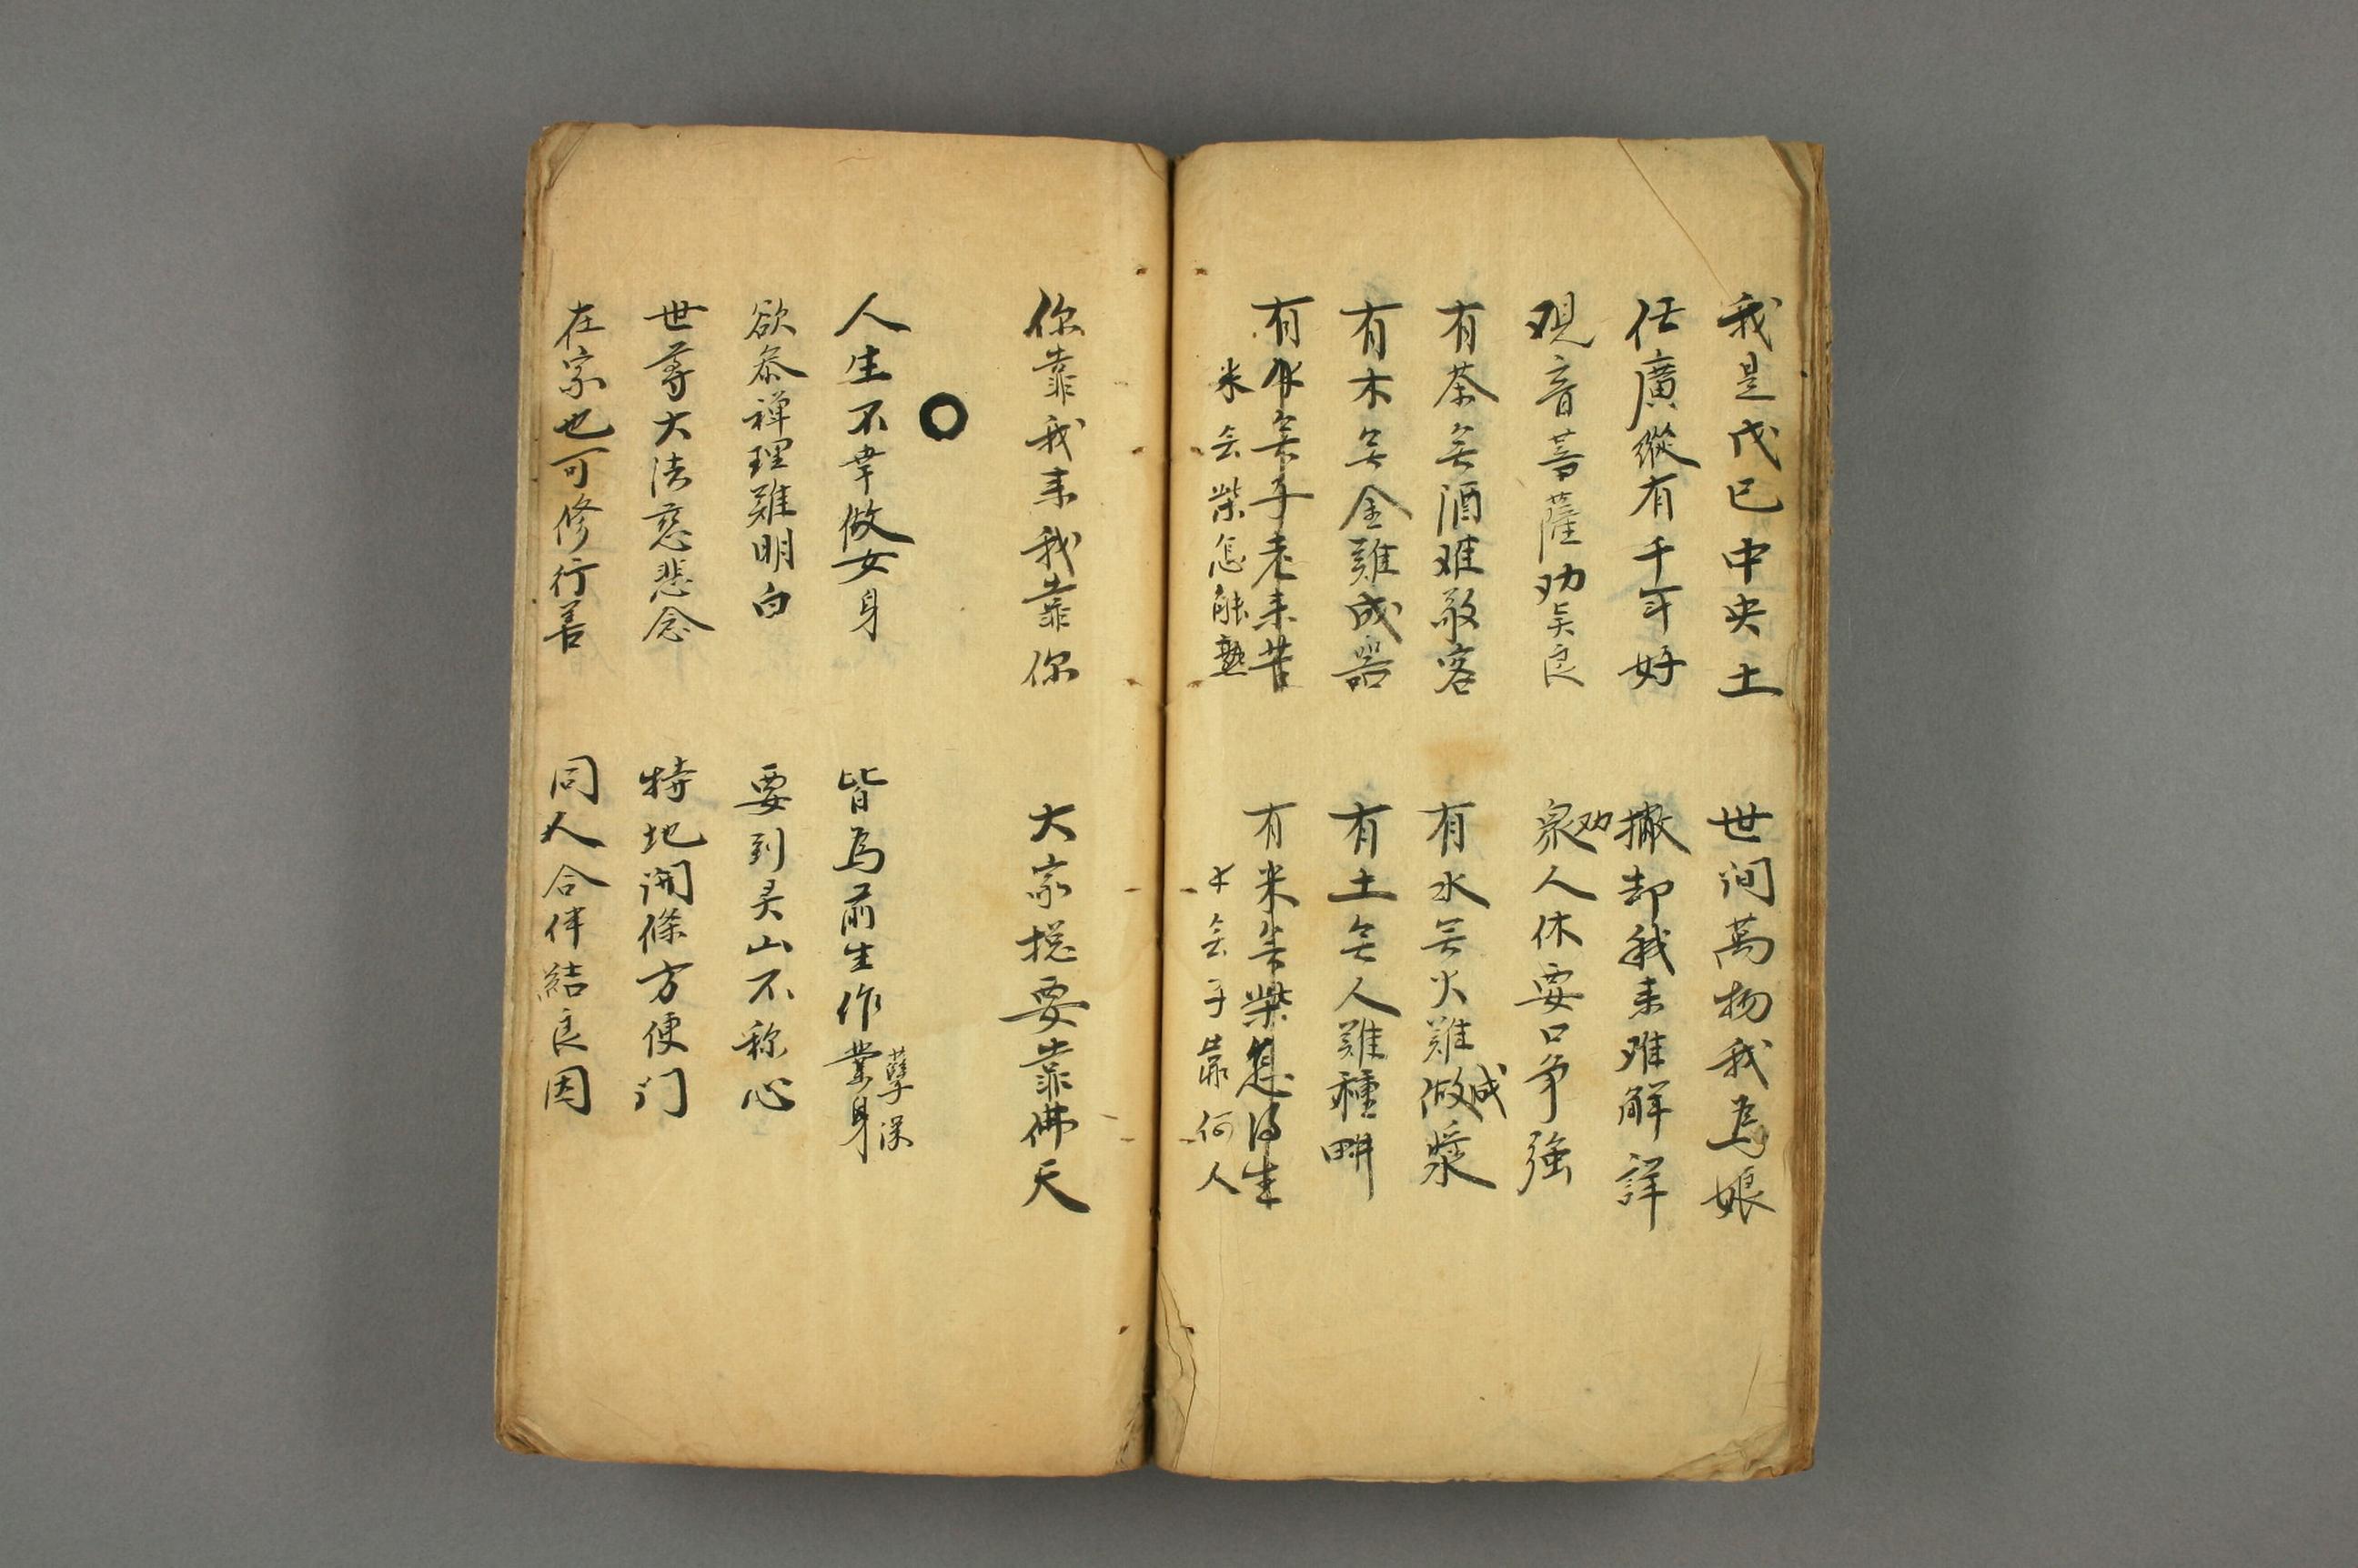 我是戊己中央土 世间萬物我為娘
任廣縱有千年好 撇却我来难解詳
观音菩薩劝吴良 劝衆人休要口争強
有茶无酒难敬客 有水无火難做成漿
有木无金難成器 有土无人難種畊
有才无子老来苦 有米无柴怎得生
米无柴怎能熟 才无子靠何人
你靠我来我靠你 大家揔要靠佛天
〇
人生不幸做女身 皆為前生作業身
孽深
欲叅禅理難明白 要到灵山不称心
世尊大法慈悲念 特地開條方便门
在家也可修行善 同人合伴結良因